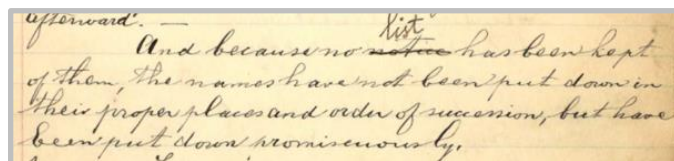 afterward". —
list
And because no notice has been kept
of them, the names have not been put down in
their proper places and order of succession, but have
been put down promiscuously.